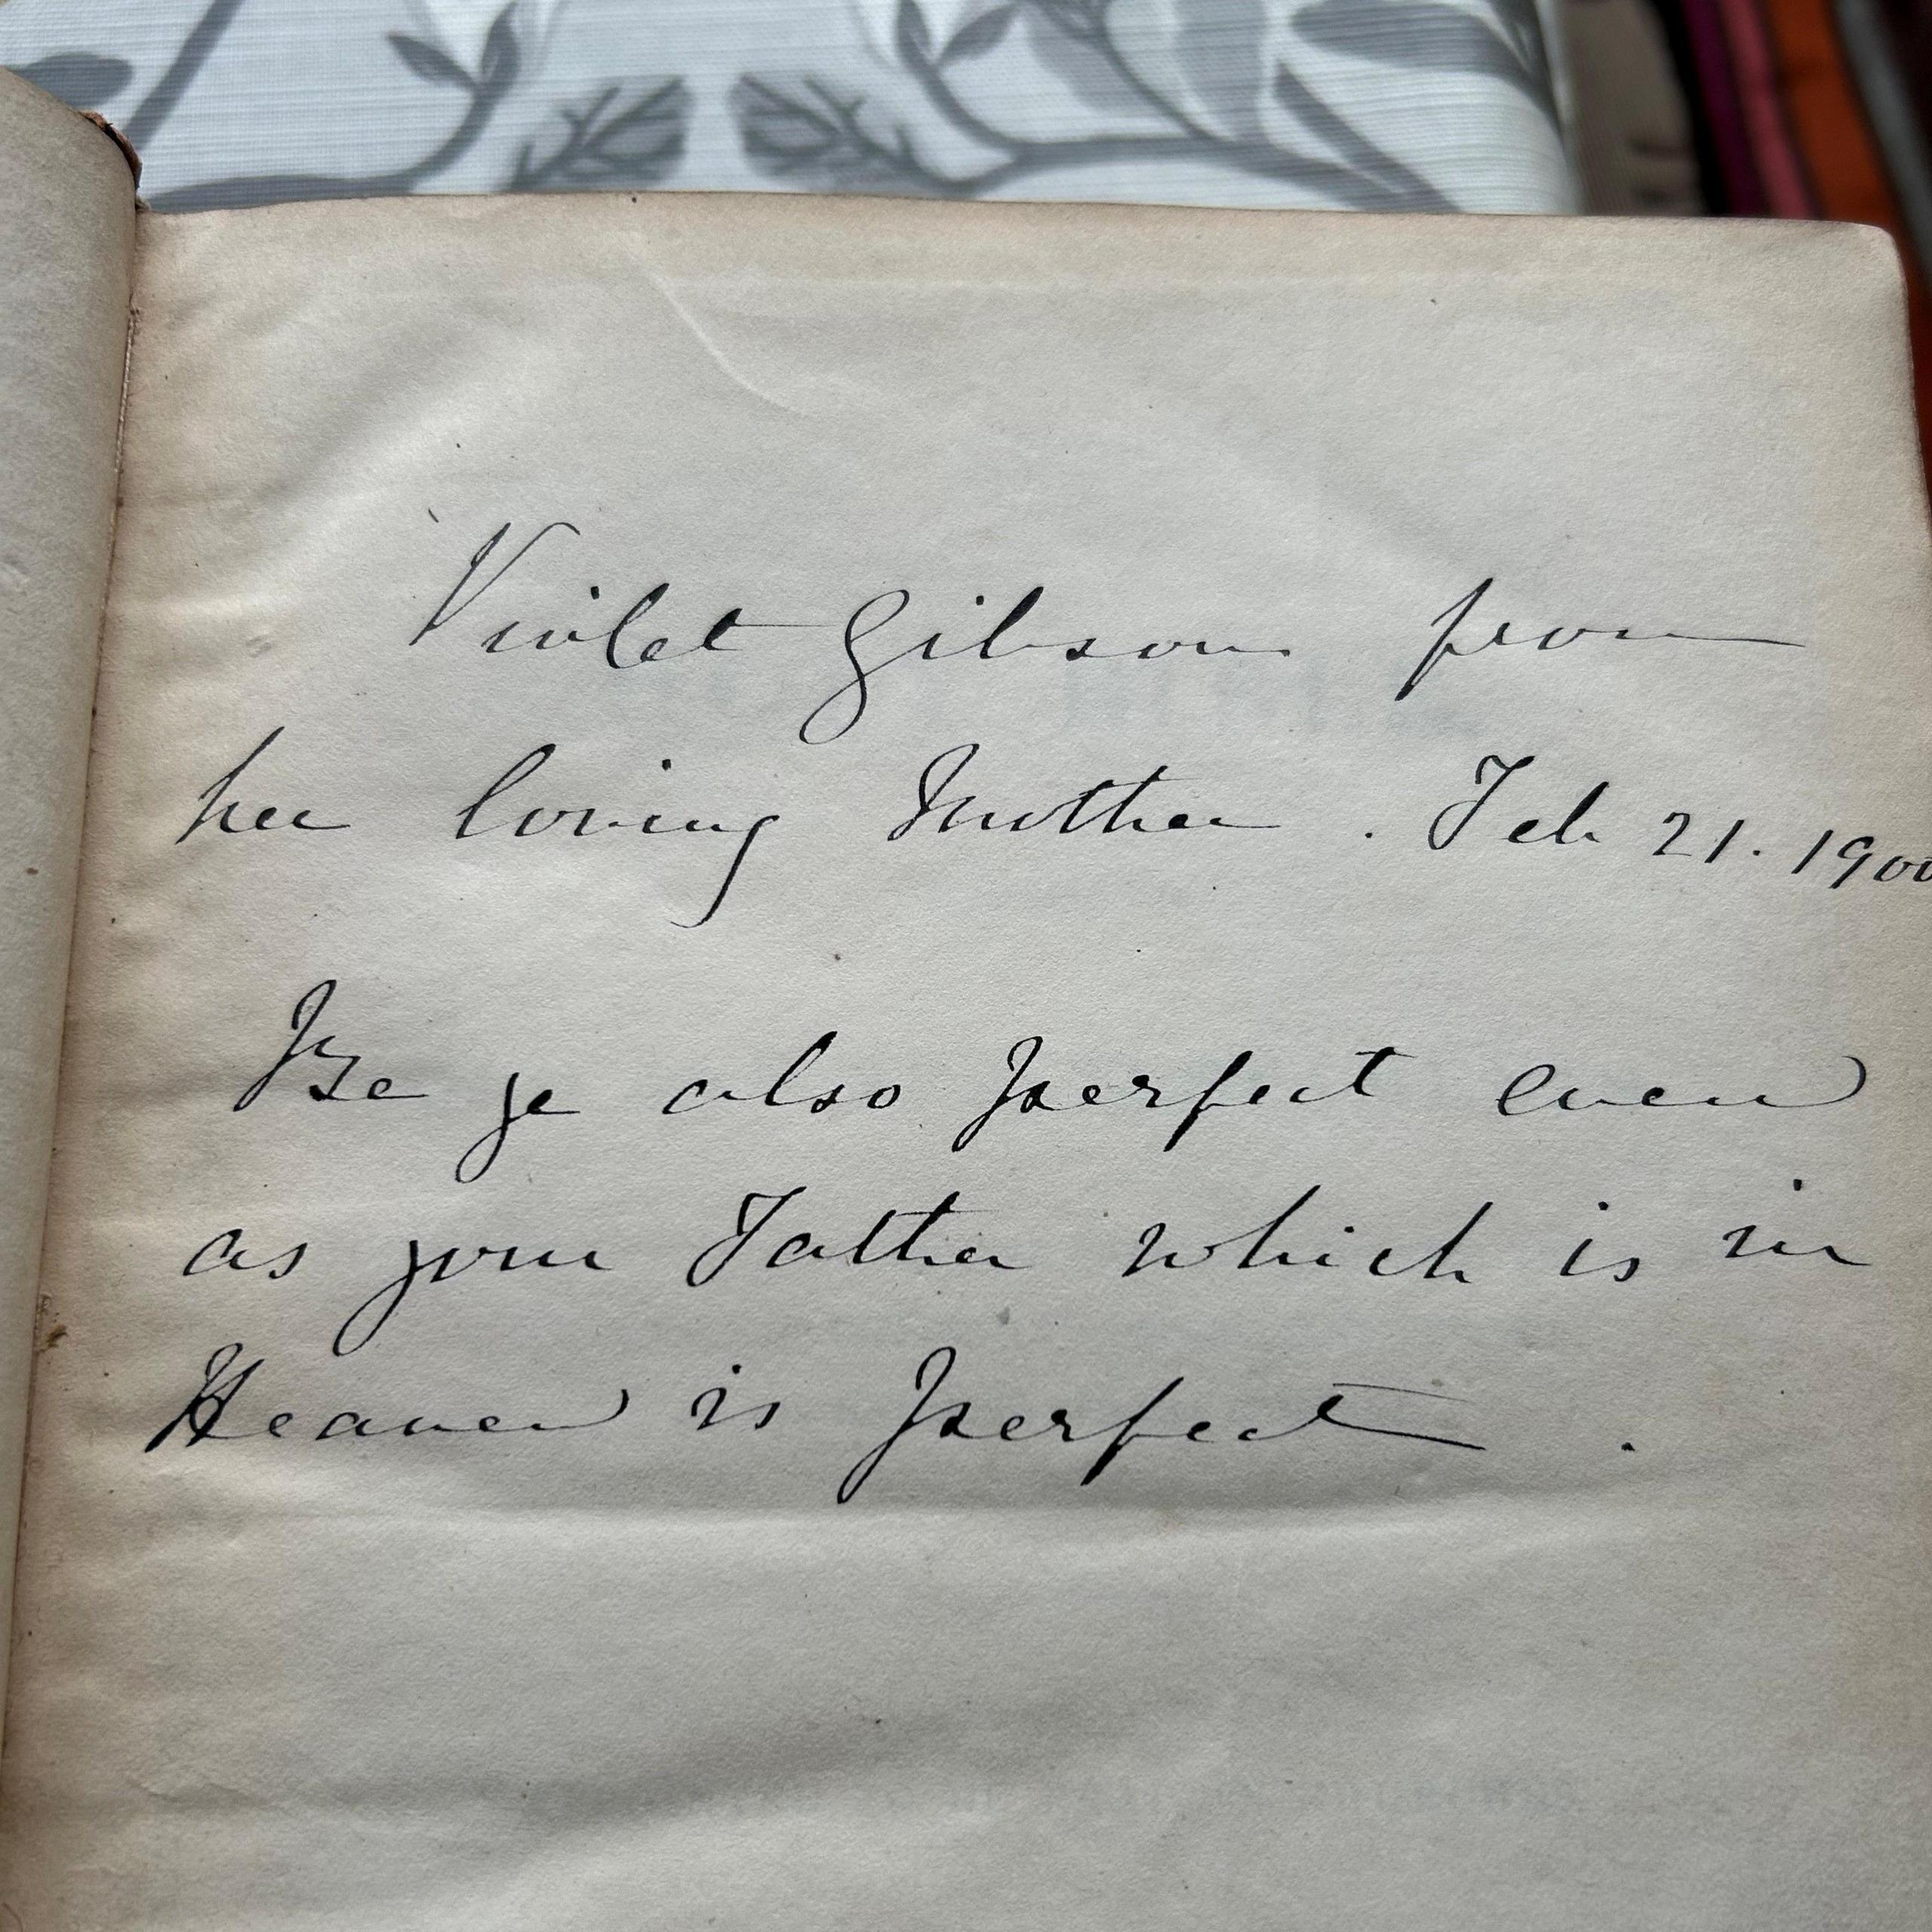 Violet Gibson from
her loving Mother. Feb 21. 1900
Be ye also perfect even
as your Father which is in
Heaven is perfect.